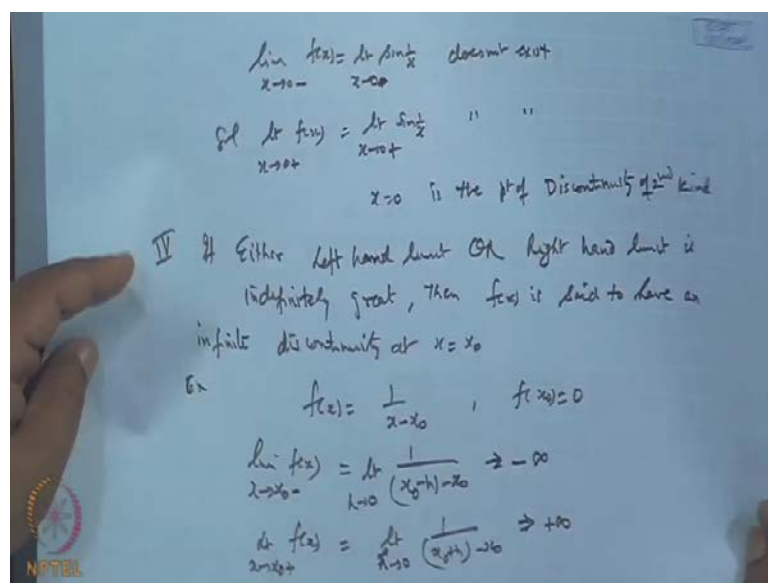 lim f(x) = lt sin 1/x doesn't exist
x→0- x→0-
lt f(x) = lt sin 1/x " "
x→0+ x→0+
x=0 is the pt of Discontinuity of 2nd kind
IV If Either Left hand limit OR Right hand limit is
indefinitely great, then f(x) is said to have an
infinite discontinuity at x = x0
Ex f(x) = 1/(x-x0) , f(x0)=0
lim f(x) = lt 1/((x0-h)-x0) → -∞
x→x0- h→0
lt f(x) = lt 1/((x0+h)-x0) ⇒ +∞
x→x0+ h→0
NPTEL